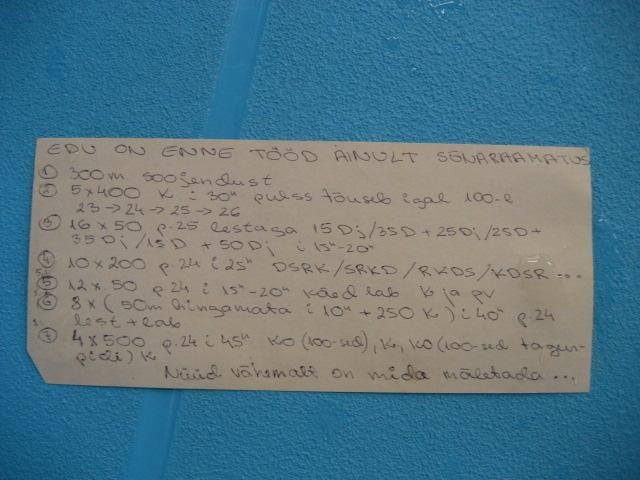 EDU ON ENNE TÖÖD AINULT SÕNARAAMATUS
① 300m soojendust
② 5x400 K i 30" pulss tõuseb igal 100-l
23→24→25→26
③ 16x50 p.25 lestaga 15Dj/35D+25Dj/25D+
35Dj/15D + 50Dj i 15"-20"
④ 10x200 p.24 i 25" DSRK/SRKD/RKDS/KDSR...
⑤ 12x50 p.24 i 15"-20" käed lab K ja pv
⑥ 8x(50m hingamata i 10" + 250 K) i 40" p.24
lest + lab
⑦ 4x500 p.24 i 45" KO (100-sed), K, KO (100-sed tagur-
pidi) K
Nüüd vähemalt on mida mäletada...